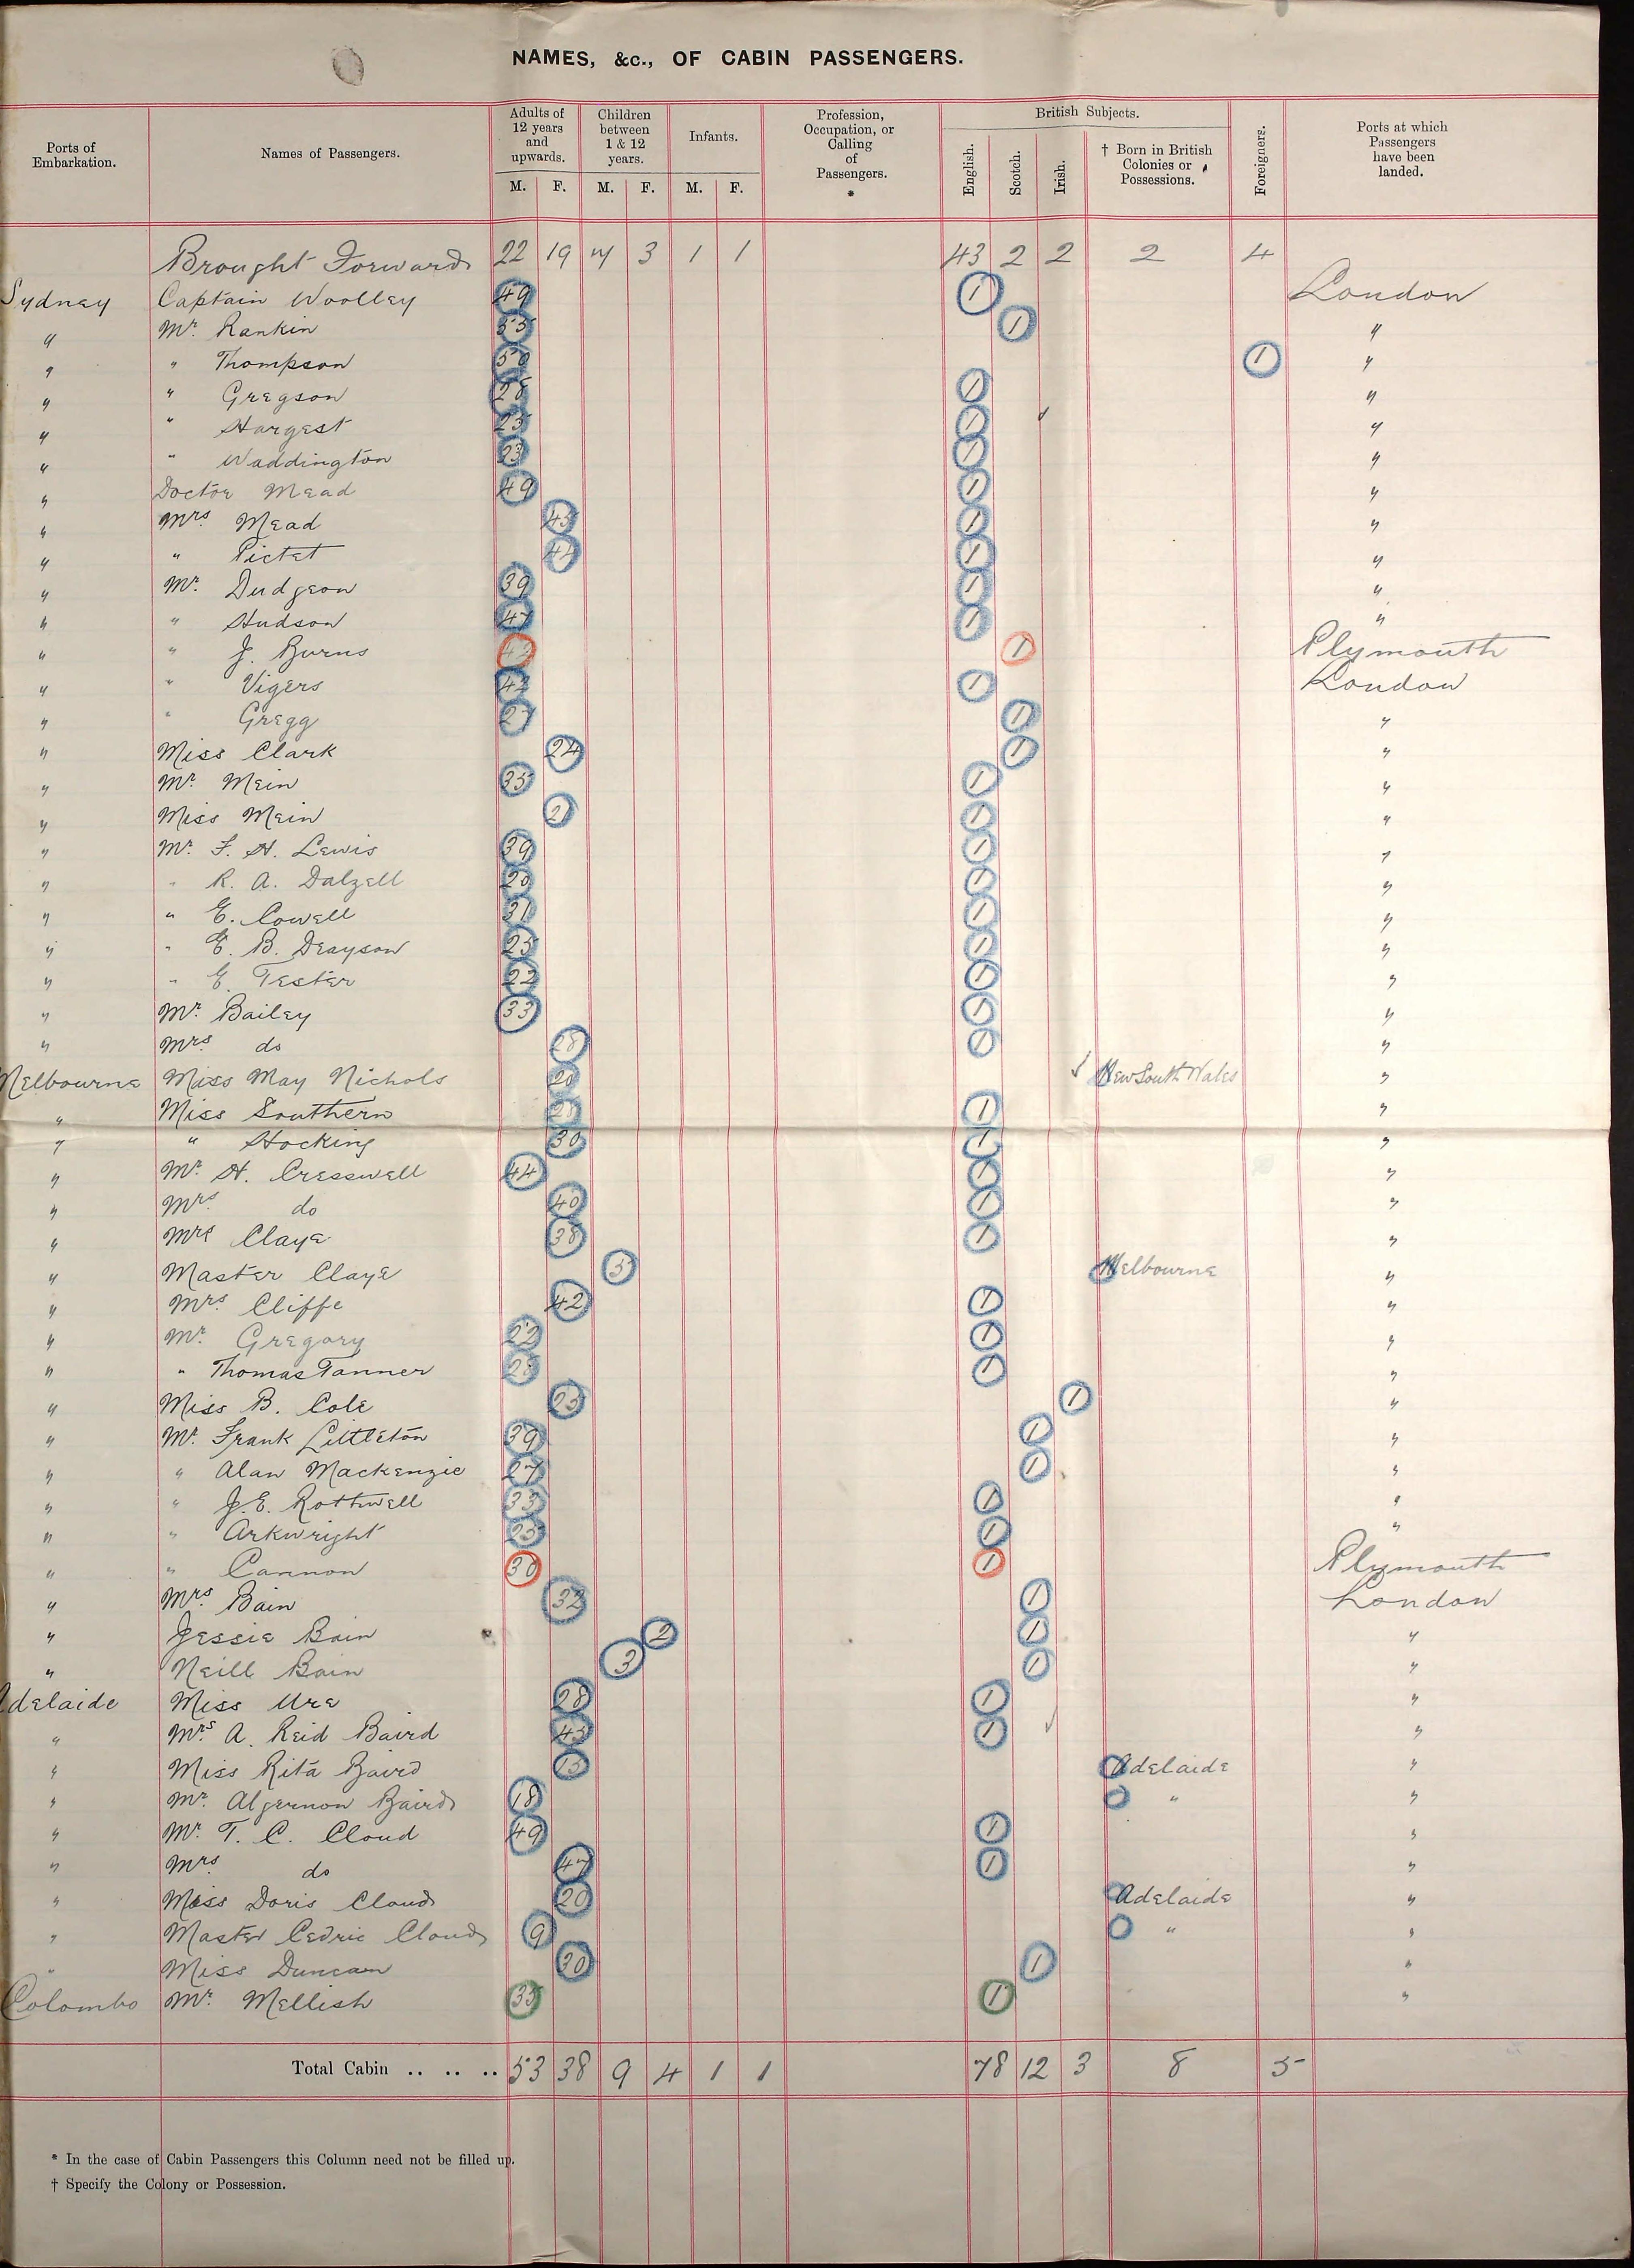 NAMES, &c., OF CABIN PASSENGERS.
Ports of Embarkation. Names of Passengers. Adults of 12 years and upwards. M. F. Children between 1 & 12 years. M. F. Infants. M. F. Profession, Occupation, or Calling of Passengers. * British Subjects. English. Scotch. Irish. † Born in British Colonies or Possessions. Foreigners. Ports at which Passengers have been landed.
Brought Forward 22 19 7 3 1 1 43 2 2 2 4
Sydney Captain Woolley 49 1 London
" Mr. Rankin 55 1 "
" " Thompson 50 1 "
" " Gregson 28 1 "
" " Hargest 25 1 "
" " Waddington 23 1 "
" Doctor Mead 49 1 "
" Mrs. Mead 45 1 "
" " Pictet 44 1 "
" Mr. Dudgeon 39 1 "
" " Hudson 47 1 "
" " J. Burns 42 1 Plymouth
" " Vigers 42 1 London
" " Gregg 27 1 "
" Miss Clark 24 1 "
" Mr. Mein 35 1 "
" Miss Mein 21 1 "
" Mr. F. H. Lewis 39 1 "
" " R. A. Dalzell 20 1 "
" " E. Cowell 31 1 "
" " E. B. Drayson 25 1 "
" " E. Tester 22 1 "
" Mr. Bailey 33 1 "
" Mrs. do 28 1 "
Melbourne Miss May Nichols 20 New South Wales "
" Miss Southern 1 "
" " Hocking 30 1 "
" Mr. H. Cresswell 44 1 "
" Mrs. do 40 1 "
" Mrs Claye 38 1 "
" Master Claye 5 Melbourne "
" Mrs. Cliffe 42 1 "
" Mr. Gregory 22 1 "
" " Thomas Tanner 28 1 "
" Miss B. Cole 25 1 "
" Mr. Frank Littleton 39 1 "
" " Alan Mackenzie 27 1 "
" " J. E. Rothwell 33 1 "
" " Arkwright 25 1 "
" " Cannon 30 1 Plymouth
" Mrs. Bain 32 1 London
" Jessie Bain 2 1 "
" Neill Bain 3 1 "
Adelaide Miss Ure 28 1 "
" Mrs. A. Reid Baird 45 1 "
" Miss Rita Baird 15 Adelaide "
" Mr. Algernon Baird 18 " "
" Mr. T. C. Cloud 49 1 "
" Mrs. do 47 1 "
" Miss Doris Cloud 20 Adelaide "
" Master Cedric Cloud 9 " "
" Miss Duncan 30 1 "
Colombo Mr. Mellish 35 1 "
Total Cabin .. .. .. 53 38 9 4 1 1 78 12 3 8 5
* In the case of Cabin Passengers this Column need not be filled up.
† Specify the Colony or Possession.